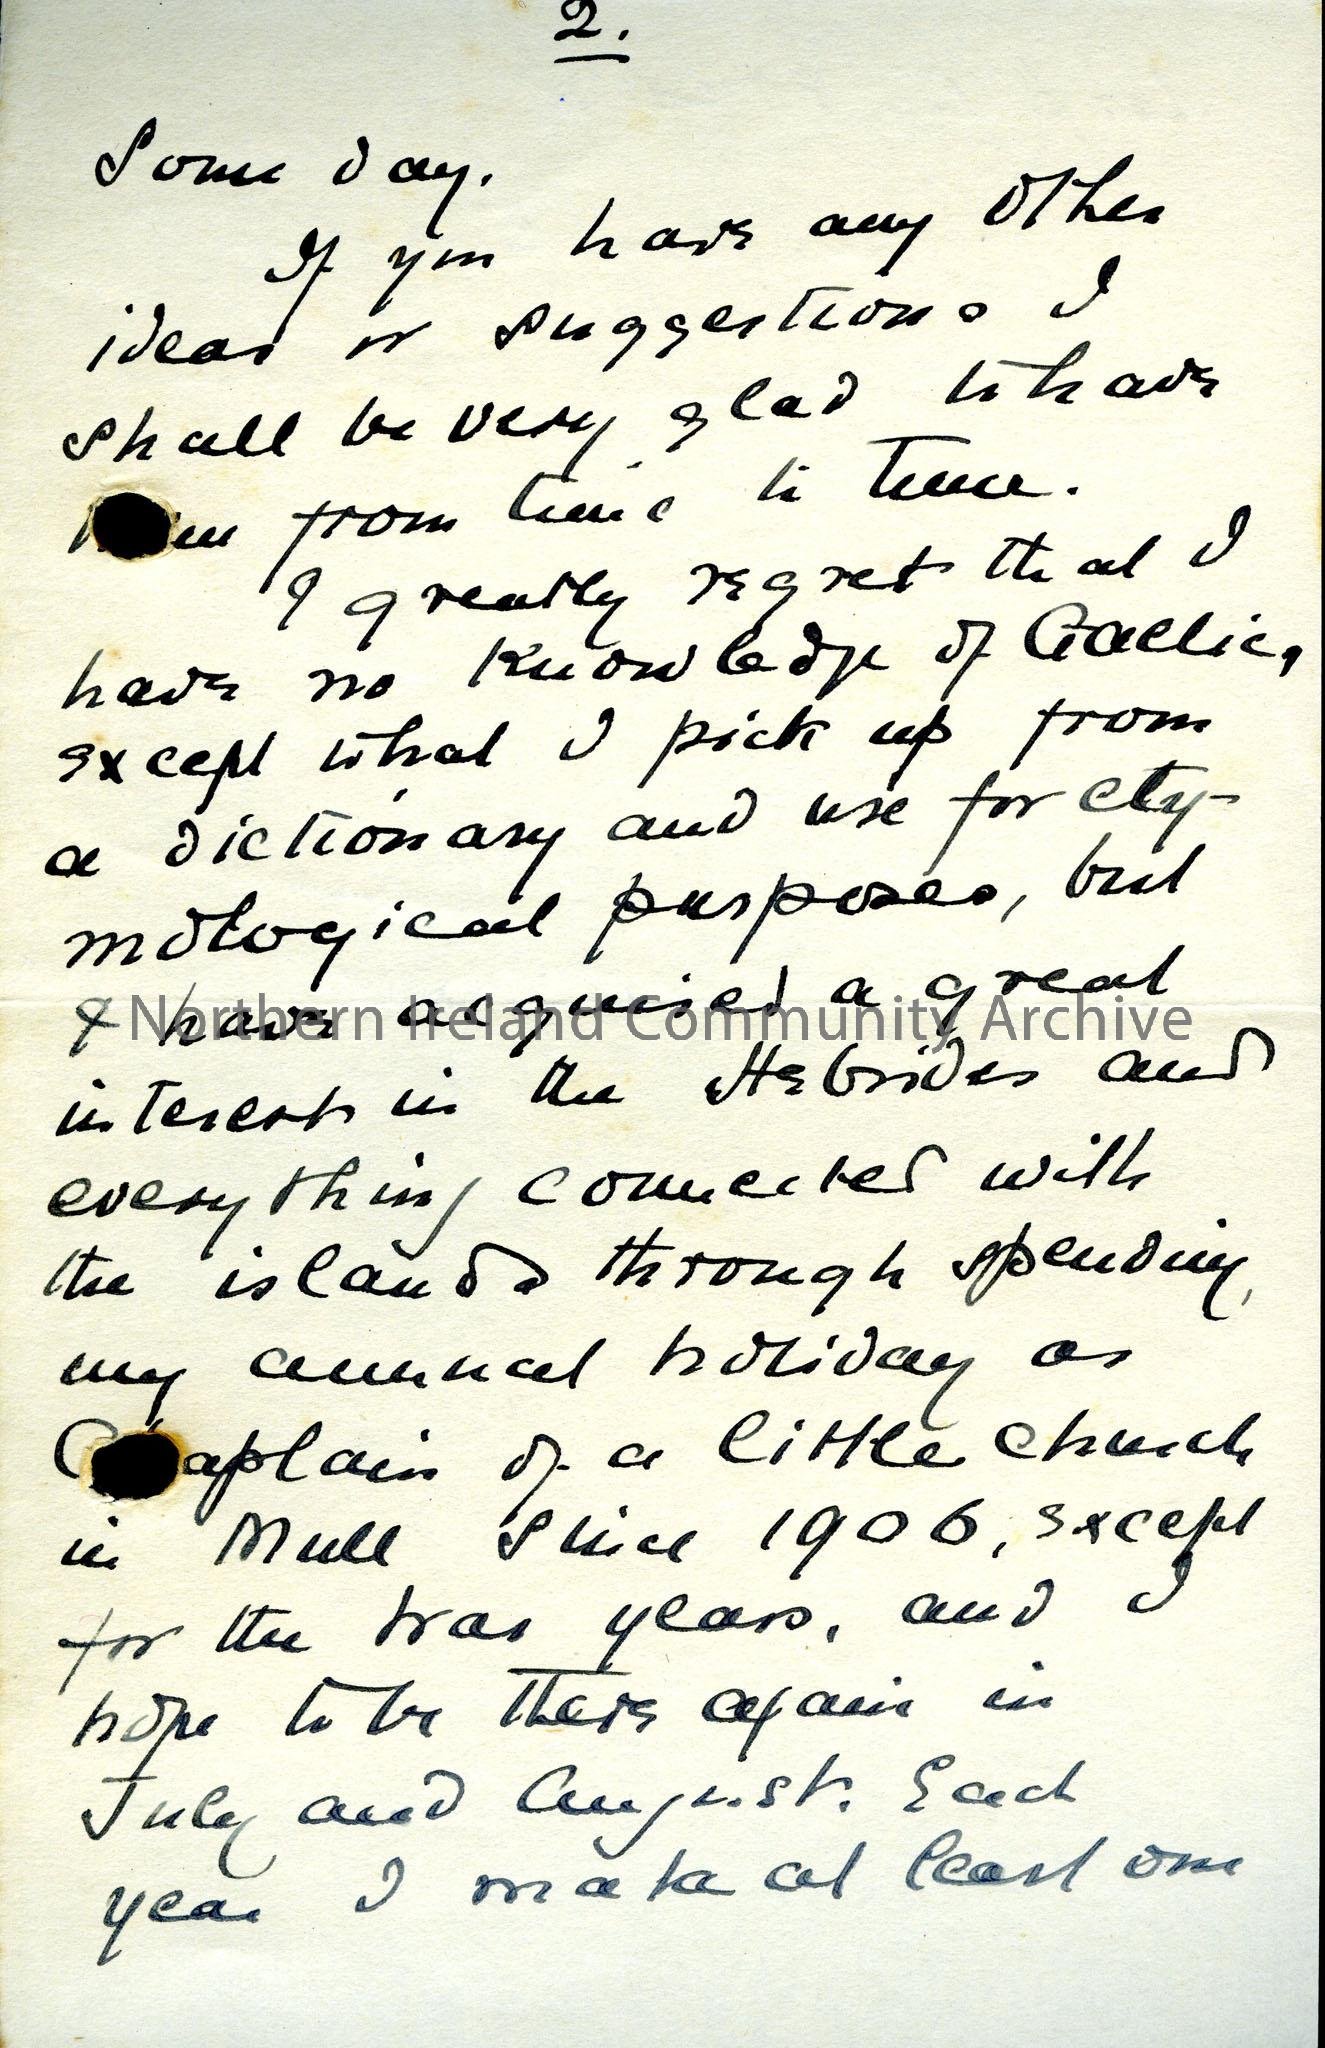 2.
Some day.
If you have any other
ideas or suggestions I
shall be very glad to have
them from time to time.
I greatly regret that I
have no knowledge of Gaelic,
except what I pick up from
a dictionary and use for ety-
mological purposes, but
I have acquired a great
Northern Ireland Community Archive
interest in the Hebrides and
everything connected with
the islands through spending
my annual holiday as
Chaplain of a little church
in Mull since 1906, except
for the war years, and I
hope to be there again in
July and August. Each
year I make at least one